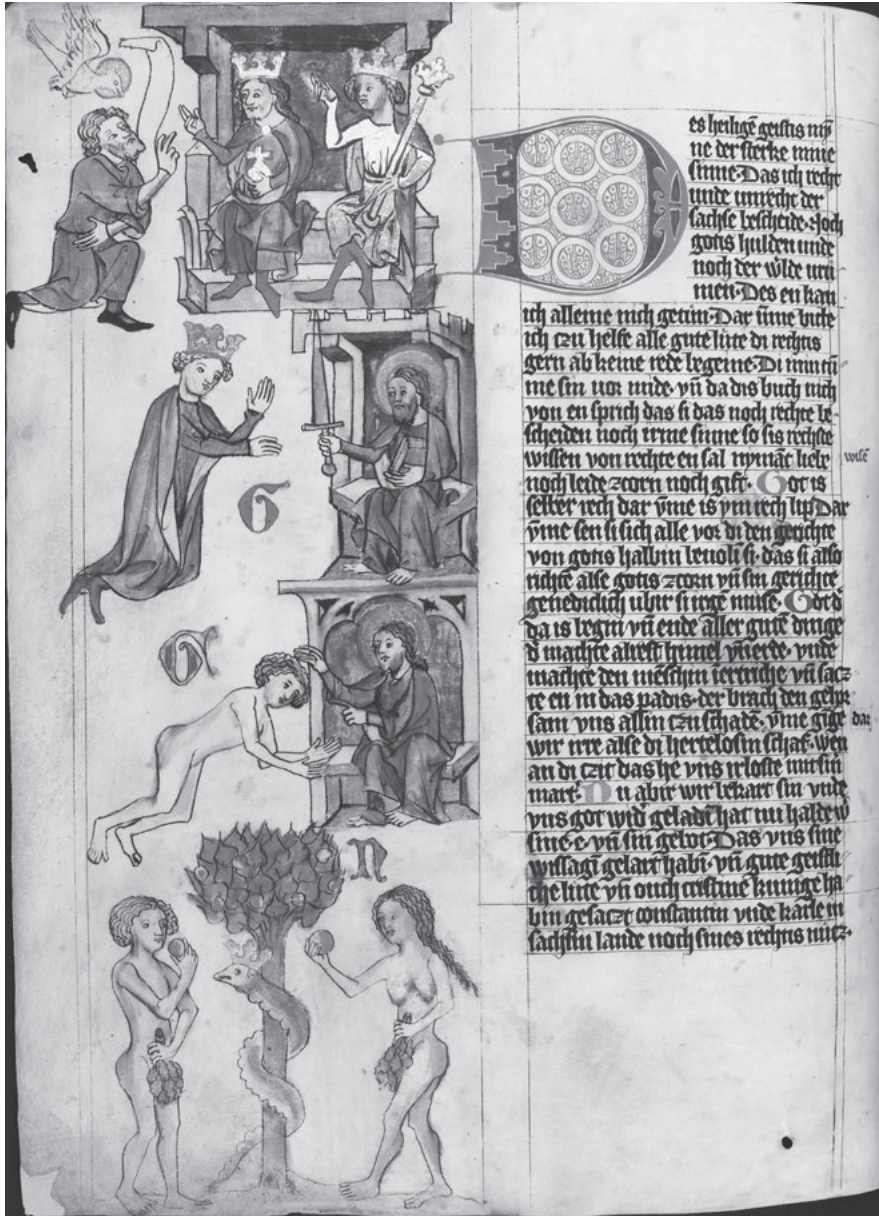 G
G
N
Des heilige geistis my
ne der sterke mine
sinne. Das ich recht
unde unrecht der
sachse bescheide. Noch
gotis hulden unde
noch der w'lde vru
men. Des en kan
ich alleine nich getun. Dar ṽme bitte
ich czu helfe alle gute lute di rechtis
gern ab keine rede begeine. Di min tũ
me sin vor mide. vñ da dis buch nich
von en sprich das si das noch rechte be
scheiden noch irme sinne so sis rechte
wissen von rechte en sal nymãt liebe wise
noch leide zcorn noch gift. Got is
selber rech dar ṽme is ym rech lip. Dar
ṽme sen si sich alle vor di den gerichte
von gotis halbin bevoln si. das si also
richtẽ alse gotis zcorn vñ sin gerichte
genediclich ubir si irgẽ muse. Got d'
da is begin vñ ende aller gutẽ dinge
d' machte alrest himel vñ erde. vnde
machte den mẽschin in ertriche vñ sacz
te en in das padis. der brach den gehor
sam vns allin czu schadẽ. ṽme gĩge dar
wir irre alse di hertelosin schaf. wen
an di czit das he vns irloste mit sin
mart'. Nu abir wir bekart sin vnde
vns got wid' geladẽ hat nu halde w'
sine. e. vñ sin gebot. Das vns sine
wissagĩ gelart habĩ. vñ gute geistli
che lute vñ ouch cristine kunige ha
bin gesaczt constantin vnde karle in
sachsin lande noch sines rechtis nucz.